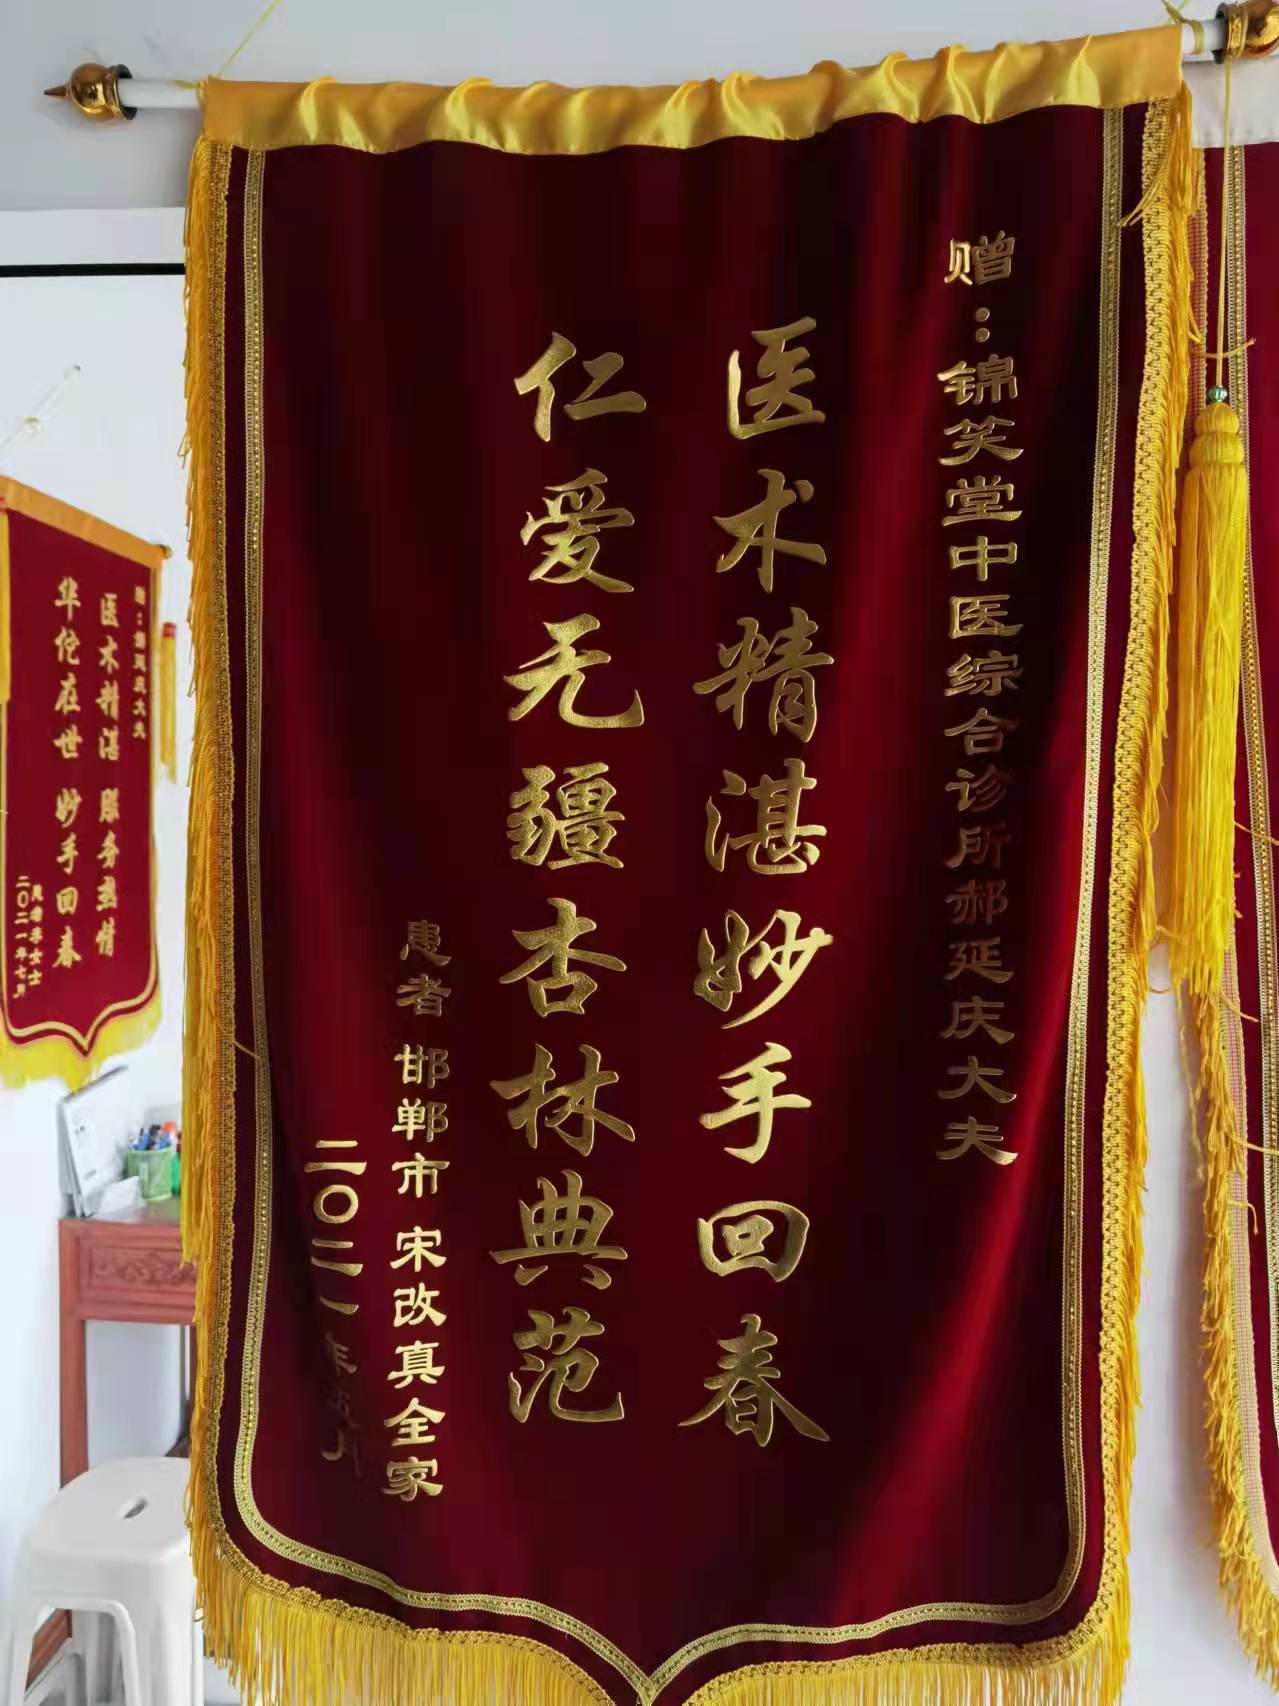 赠：锦笑堂中医综合诊所郝延庆大夫
医术精湛妙手回春
仁爱无疆杏林典范
患者 邯郸市 宋改真全家
二〇二一年五月
医术精湛 服务热情
华佗在世 妙手回春
患者李女士
二〇二一年七月